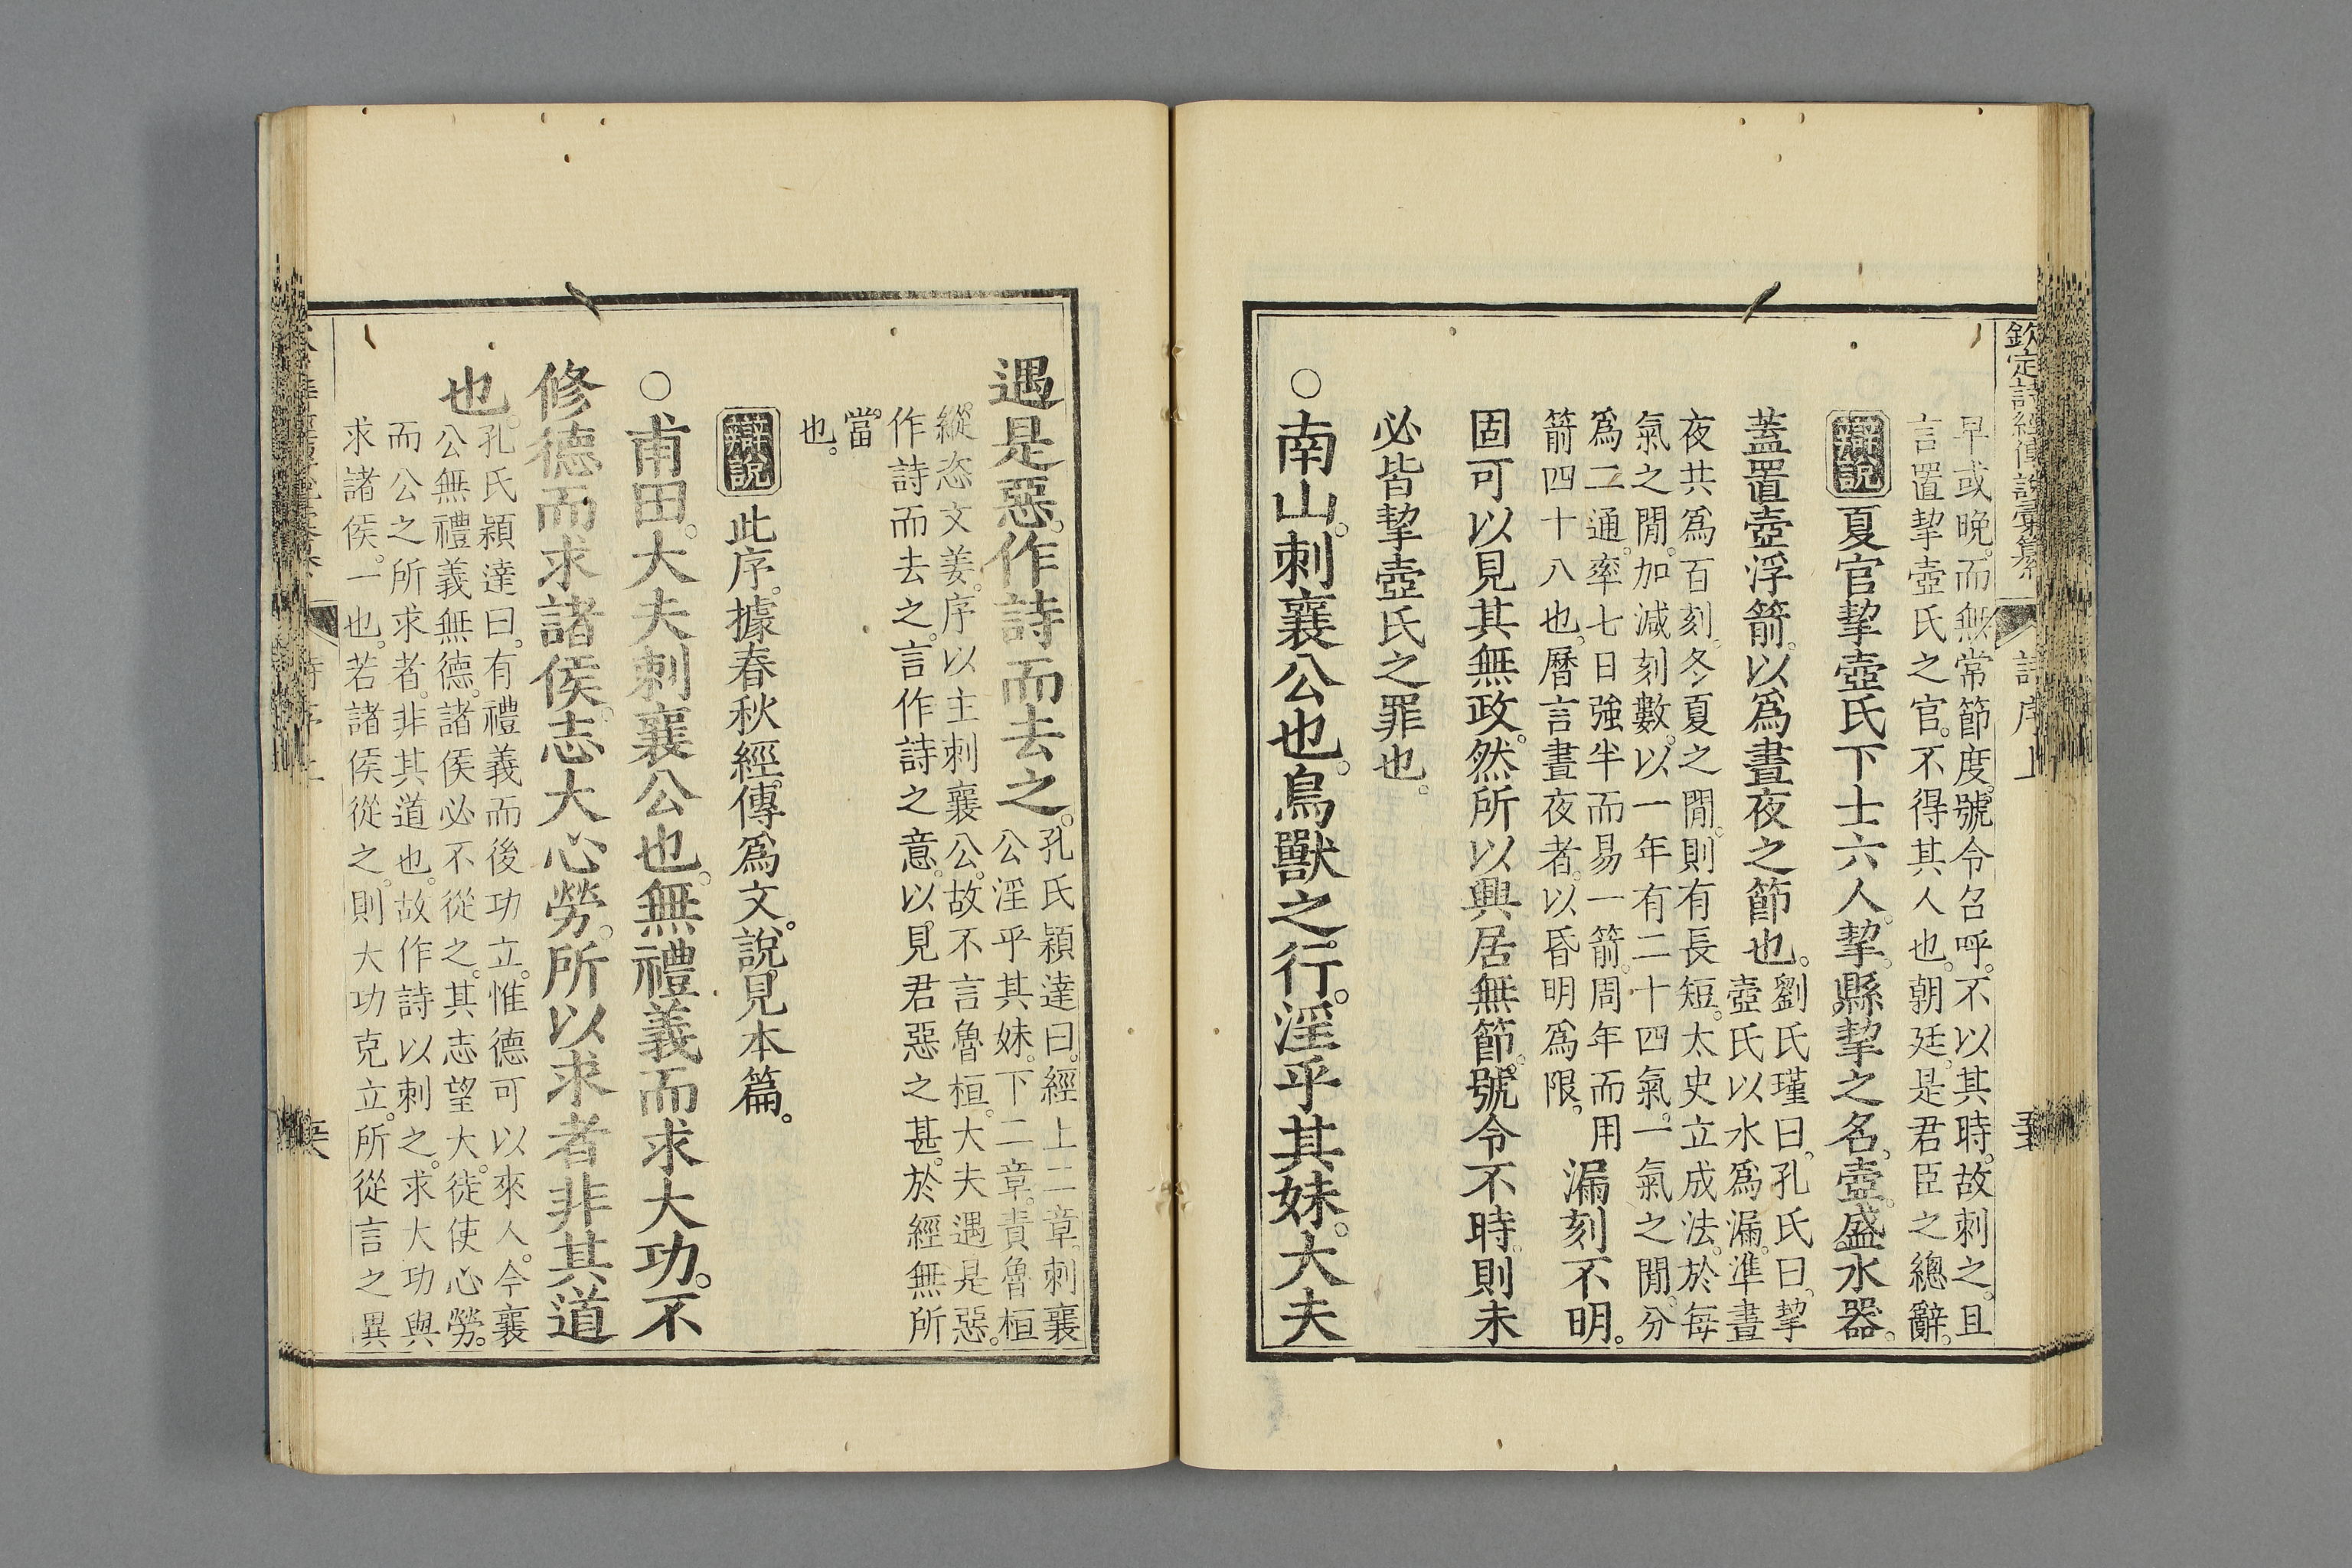 欽定詩經傳說彙纂 詩序上
早或晚。而無常節度。號令召呼。不以其時。故刺之。且
言置挈壺氏之官。不得其人也。朝廷。是君臣之總辭。
辯說 夏官挈壺氏下士六人。挈。縣挈之名。壺。盛水器。
蓋置壺浮箭。以爲晝夜之節也。
劉氏瑾曰。孔氏曰。挈
壺氏以水爲漏。準晝
夜共爲百刻。冬夏之閒。則有長短。太史立成法。於每
氣之閒。加減刻數。以一年有二十四氣。一氣之閒。分
爲二通。率七日強半而易一箭。周年而用
箭四十八也。曆言晝夜者。以昏明爲限。
漏刻不明。
固可以見其無政。然所以興居無節。號令不時。則未
必皆挈壺氏之罪也。
○南山。刺襄公也。鳥獸之行。淫乎其妹。大夫
遇是惡。作詩而去之。
孔氏穎達曰。經上二章。刺襄
公淫乎其妹。下二章。責魯桓
縱恣文姜。序以主刺襄公。故不言魯桓。大夫遇是惡。
作詩而去之。言作詩之意。以見君惡之甚。於經無所
當
也。
辯說 此序。據春秋經。傳爲文。說見本篇。
○甫田。大夫刺襄公也。無禮義而求大功。不
修德而求諸侯。志大心勞。所以求者非其道
也。
孔氏穎達曰。有禮義而後功立。惟德可以來人。今襄
公無禮義無德。諸侯必不從之。其志望大。徒使心勞。
而公之所求者。非其道也。故作詩以刺之。求大功與
求諸侯。一也。若諸侯從之。則大功克立。所從言之異